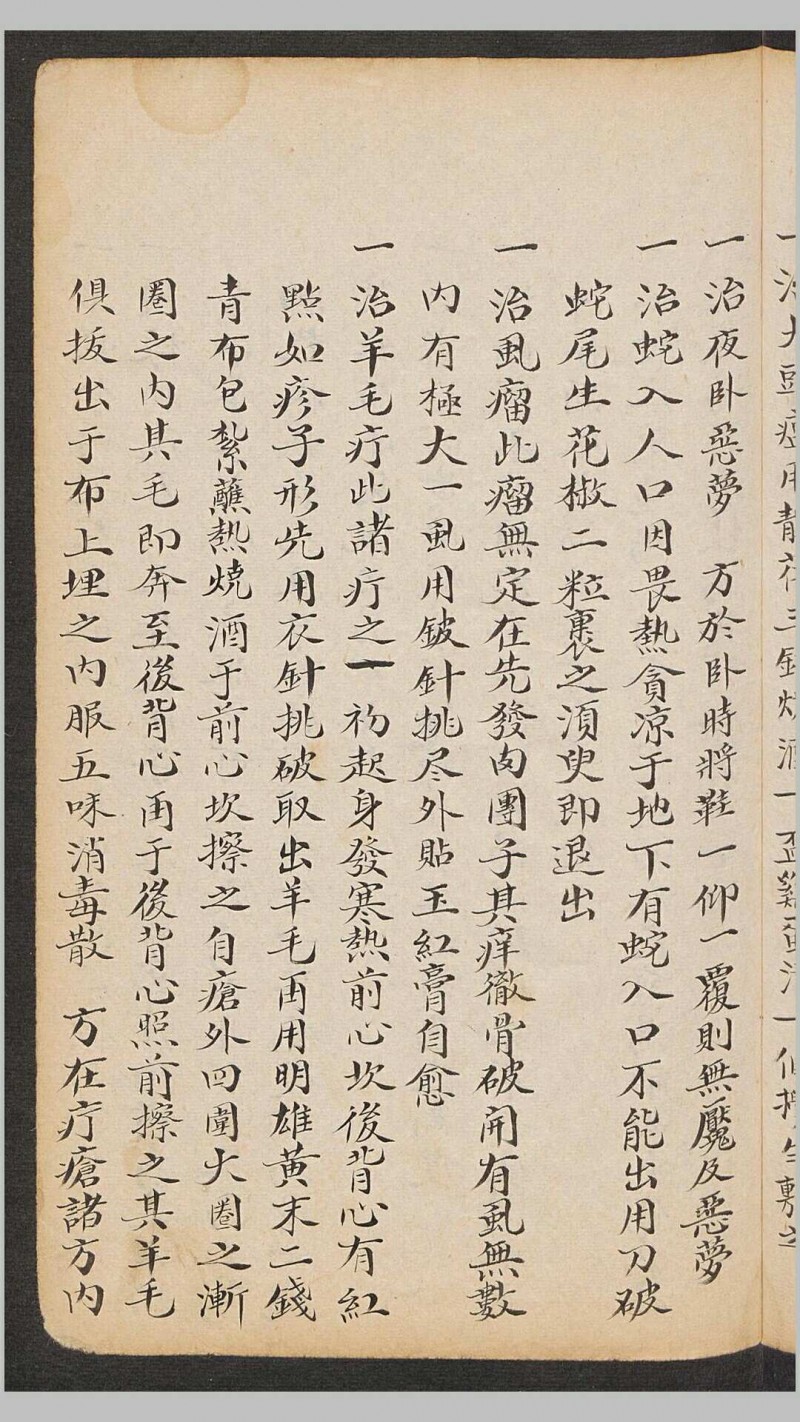 一治夜卧惡夢　方於卧時將鞋一仰一覆則無魘及惡夢
一治蛇入人口因畏熱貪凉于地下有蛇入口不能出用刀破
蛇尾生花椒二粒裹之須臾即退出
一治虱瘤此瘤無定在先發肉團子其痒徹骨破開有虱無數
内有極大一虱用鈹針挑尽外貼玉紅膏自愈
一治羊毛疔此諸疔之一初起身發寒熱前心坎後背心有紅
點如疹子形先用衣針挑破取出羊毛再用明雄黄末二錢
青布包紮蘸熱燒酒于前心坎擦之自瘡外四圍大圈之漸
圈之内其毛即奔至後背心再于後背心照前擦之其羊毛
俱拔出于布上埋之内服五味消毒散　方在疔瘡諸方内